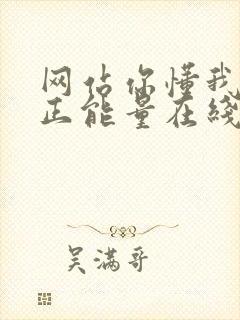 网佔你懂我
正能量在綫
吴满哥